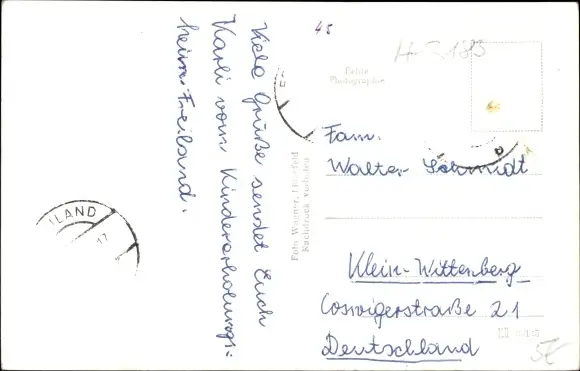 Viele Grüße sendet Euch
Karli vom Kindererholungs-
heim Freiland.
45
H-G 183
Echte
Photographie
Foto Wagner, Lilienfeld
Nachdruck verboten
Fam.
Walter Schmidt
Klein-Wittenberg
Coswigerstraße 21
Deutschland
ILAND
17